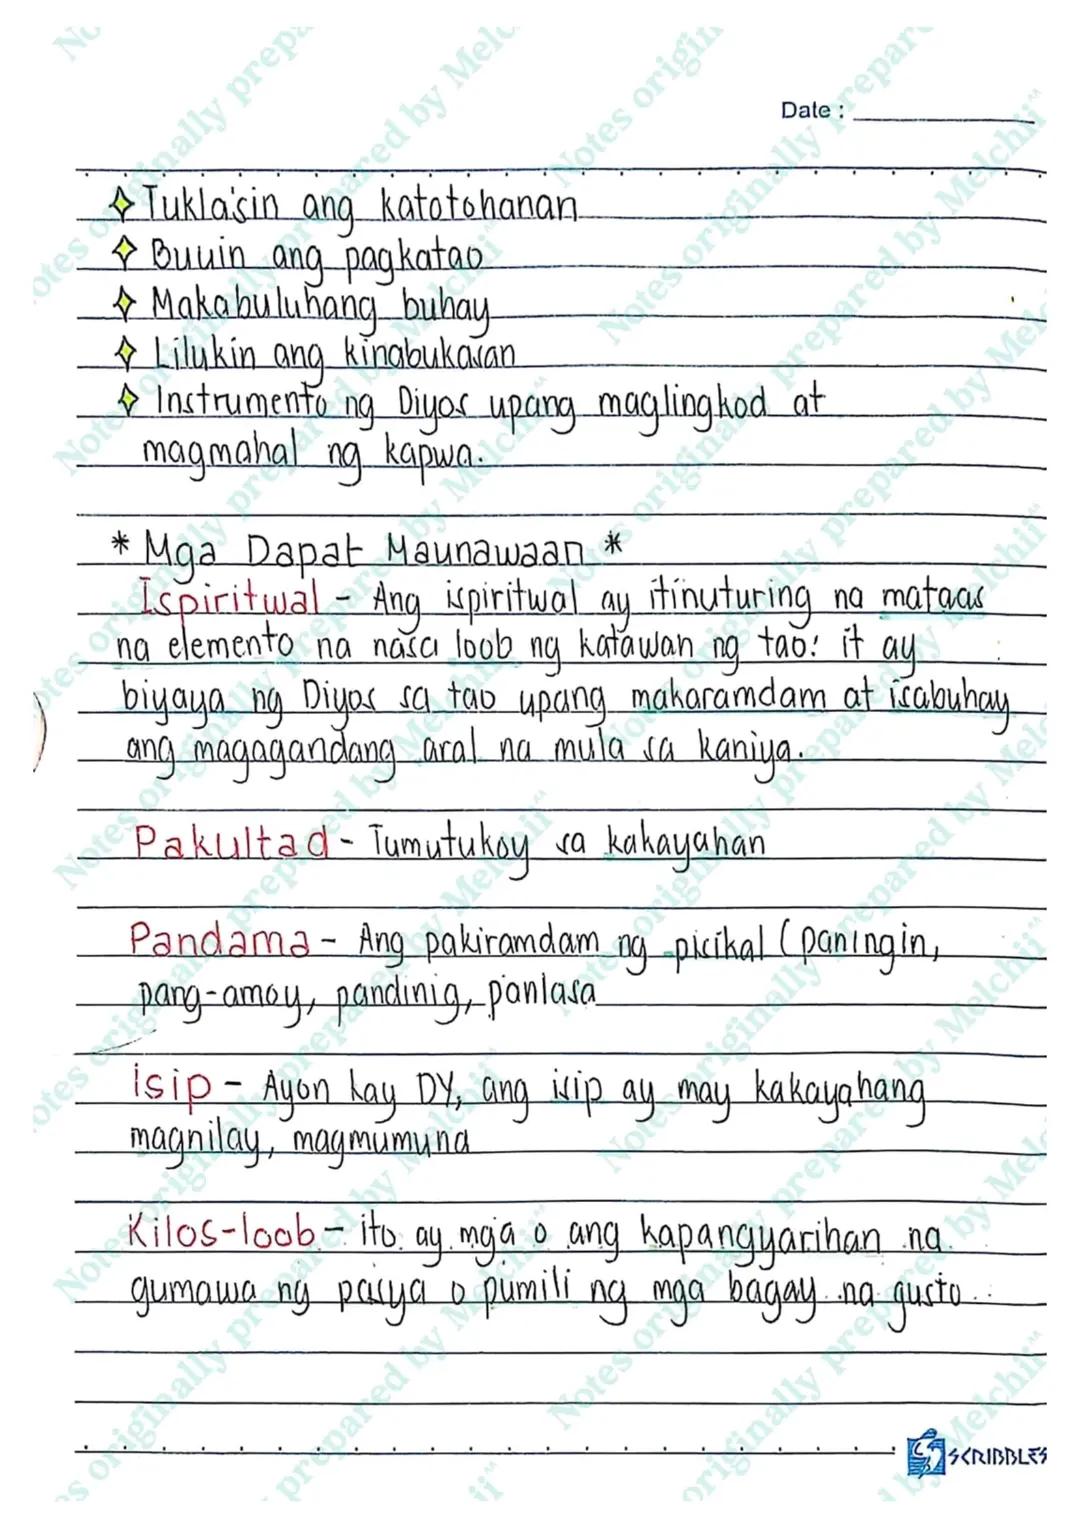 Date :
Tuklasin ang katotohanan
Buuin ang pagkatao
Makabuluhang buhay
Lilukin ang kinabukasan
Instrumento ng Diyos upang maglingkod at
magmahal ng kapwa.
* Mga Dapat Maunawaan *
Ispiritwal - Ang ispiritwal ay itinuturing na mataas
na elemento na nasa loob ng katawan ng tao: it ay
biyaya ng Diyos sa tao upang makaramdam at isabuhay
ang magagandang aral na mula sa kaniya.
Pakultad - Tumutukoy sa kakayahan
Pandama - Ang pakiramdam ng pisikal (paningin,
pang-amoy, pandinig, panlasa
isip - Ayon kay DY, ang isip ay may kakayahang
magnilay, magmumuna
Kilos-loob - ito ay mga o ang kapangyarihan na
gumawa ng pasya o pumili ng mga bagay na gusto.
SCRIBBLES
Notes originally prepared by Melchii"